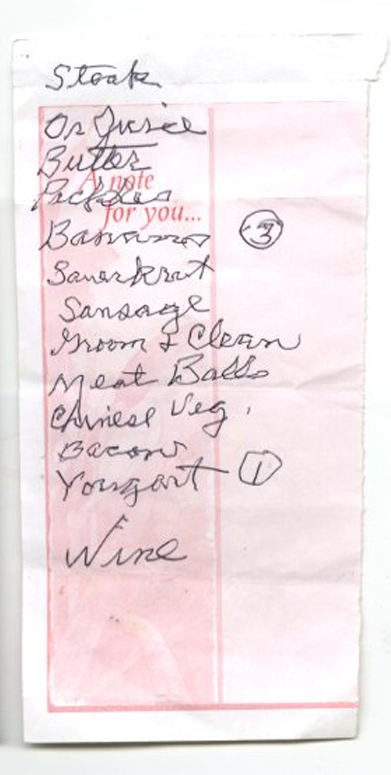 Steak
Or Juice
Butter
A note
Pickles
for you...
Bananas 3
Sauerkraut
Sausage
Groom & Clean
Meat Balls
Chinese Veg.
Bacon
Yougart 1
Wine